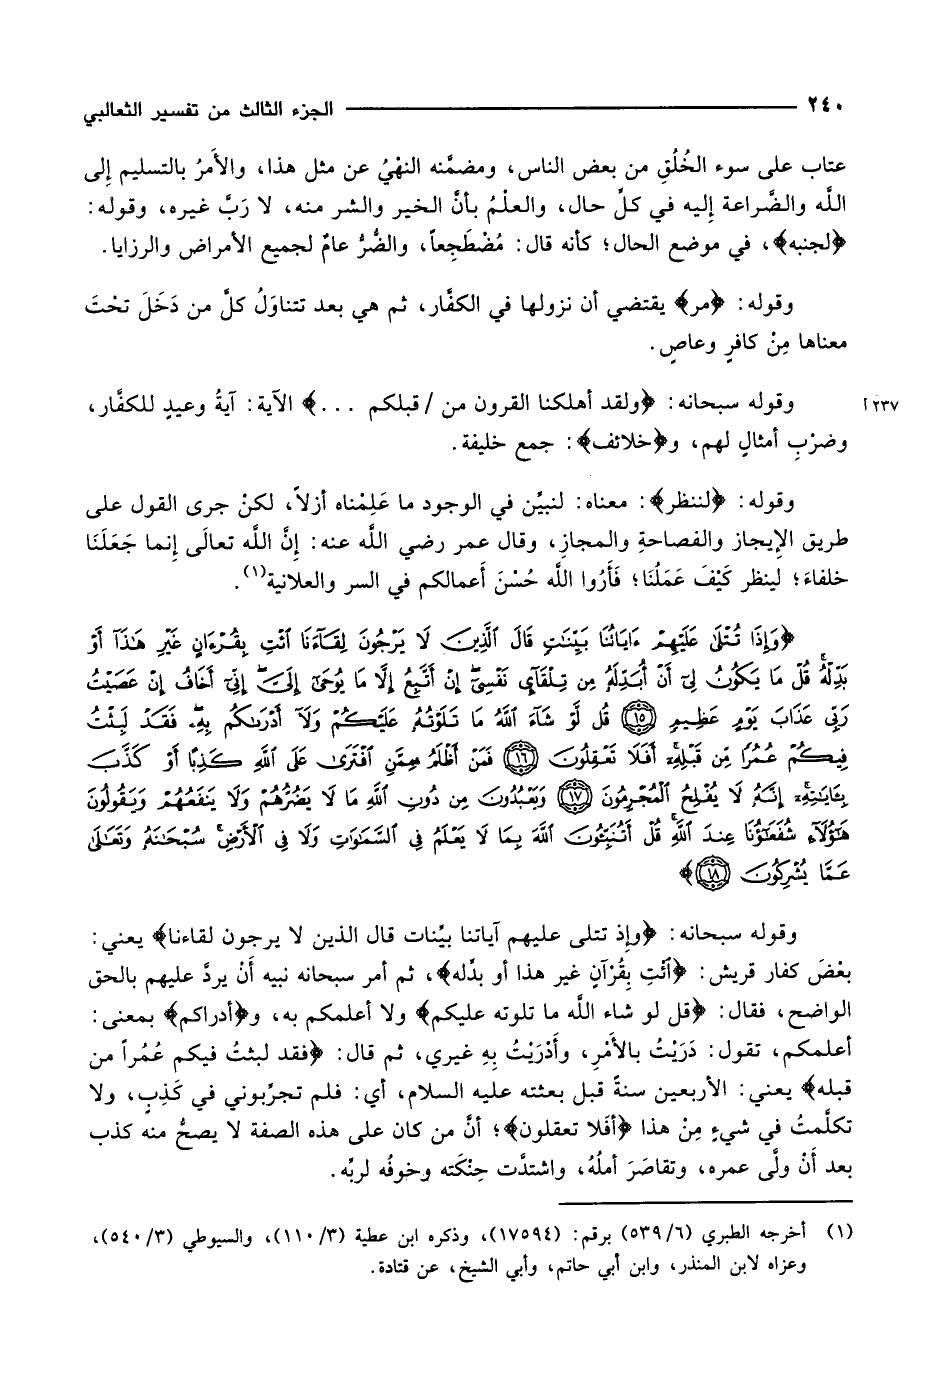 ٢٤٠ الجزء الثالث من تفسير الثعالبي
عتاب على سوء الخُلُقِ من بعض الناس، ومضمَّنه النهْيُ عن مثل هذا، والأَمرُ بالتسليم إِلى
اللَّه والضَّراعة إِليه في كلِّ حال، والعلْمُ بأنَّ الخير والشر منه، لا رَبَّ غيره، وقوله:
﴿لجنبه﴾، في موضع الحال؛ كأنه قال: مُضْطَجِعاً، والضُّرُّ عامٌ لجميع الأمراض والرزايا.
وقوله: ﴿مر﴾ يقتضي أن نزولها في الكفَّار، ثم هي بعد تتناوَلُ كلَّ من دَخَلَ تحْتَ
معناها مِنْ كافرٍ وعاصٍ.
وقوله سبحانه: ﴿ولقد أهلكنا القرون من / قبلكم ...﴾ الآية: آيةُ وعيدٍ للكفَّار، ٢٣٧ أ
وضرْبِ أمثالٍ لهم، و﴿خلائف﴾: جمع خليفة.
وقوله: ﴿لننظر﴾: معناه: لنبيِّن في الوجود ما عَلِمْناه أزلاً، لكنْ جرى القول على
طريق الإِيجاز والفصاحةِ والمجازِ، وقال عمر رضي اللَّه عنه: إِنَّ اللَّه تعالَى إِنما جَعَلَنَا
خلفاءَ؛ لينظر كَيْفَ عَمَلُنَا؛ فَأَرُوا اللَّه حُسْنَ أَعمالكم في السر والعلانية(١).
﴿وَإِذَا تُتْلَىٰ عَلَيْهِمْ ءَايَاتُنَا بَيِّنَٰتٍ قَالَ ٱلَّذِينَ لَا يَرْجُونَ لِقَآءَنَا ٱئْتِ بِقُرْءَانٍ غَيْرِ هَٰذَآ أَوْ
بَدِّلْهُ ۚ قُلْ مَا يَكُونُ لِىٓ أَنْ أُبَدِّلَهُۥ مِن تِلْقَآىِٕ نَفْسِىٓ ۖ إِنْ أَتَّبِعُ إِلَّا مَا يُوحَىٰٓ إِلَىَّ ۖ إِنِّىٓ أَخَافُ إِنْ عَصَيْتُ
رَبِّى عَذَابَ يَوْمٍ عَظِيمٍ ﴿١٥﴾ قُل لَّوْ شَآءَ ٱللَّهُ مَا تَلَوْتُهُۥ عَلَيْكُمْ وَلَآ أَدْرَىٰكُم بِهِۦ ۖ فَقَدْ لَبِثْتُ
فِيكُمْ عُمُرًا مِّن قَبْلِهِۦٓ ۚ أَفَلَا تَعْقِلُونَ ﴿١٦﴾ فَمَنْ أَظْلَمُ مِمَّنِ ٱفْتَرَىٰ عَلَى ٱللَّهِ كَذِبًا أَوْ كَذَّبَ
بِـَٔايَٰتِهِۦٓ ۚ إِنَّهُۥ لَا يُفْلِحُ ٱلْمُجْرِمُونَ ﴿١٧﴾ وَيَعْبُدُونَ مِن دُونِ ٱللَّهِ مَا لَا يَضُرُّهُمْ وَلَا يَنفَعُهُمْ وَيَقُولُونَ
هَٰٓؤُلَآءِ شُفَعَٰٓؤُنَا عِندَ ٱللَّهِ ۚ قُلْ أَتُنَبِّـُٔونَ ٱللَّهَ بِمَا لَا يَعْلَمُ فِى ٱلسَّمَٰوَٰتِ وَلَا فِى ٱلْأَرْضِ ۚ سُبْحَٰنَهُۥ وَتَعَٰلَىٰ
عَمَّا يُشْرِكُونَ ﴿١٨﴾﴾
وقوله سبحانه: ﴿وإِذ تتلى عليهم آياتنا بيِّنات قال الذين لا يرجون لقاءنا﴾ يعني:
بعْضَ كفار قريش: ﴿أَئْتِ بِقُرْآنٍ غير هذا أو بدِّله﴾، ثم أمر سبحانه نبيه أَنْ يردَّ عليهم بالحق
الواضح، فقال: ﴿قل لو شاء اللَّه ما تلوته عليكم﴾ ولا أعلمكم به، و﴿أدراكم﴾ بمعنى:
أعلمكم، تقول: دَرَيْتُ بالأَمْرِ، وأَدْرَيْتُ بِهِ غيري، ثم قال: ﴿فقد لبثتُ فيكم عُمُراً من
قبله﴾ يعني: الأربعين سنةً قبل بعثته عليه السلام، أي: فلم تجرِّبوني في كَذِبٍ، ولا
تكلَّمتُ في شيءٍ مِنْ هذا ﴿أَفَلا تعقلون﴾؛ أنَّ من كان على هذه الصفة لا يصحُّ منه كذب
بعد أَنْ ولَّى عمره، وتقاصَرَ أملُهُ، واشتدَّت حِنْكَته وخوفُه لربِّه.
(١) أخرجه الطبري (٦/ ٥٣٩) برقم: (١٧٥٩٤)، وذكره ابن عطية (٣/ ١١٠)، والسيوطي (٣/ ٥٤٠)،
وعزاه لابن المنذر، وابن أبي حاتم، وأبي الشيخ، عن قتادة.